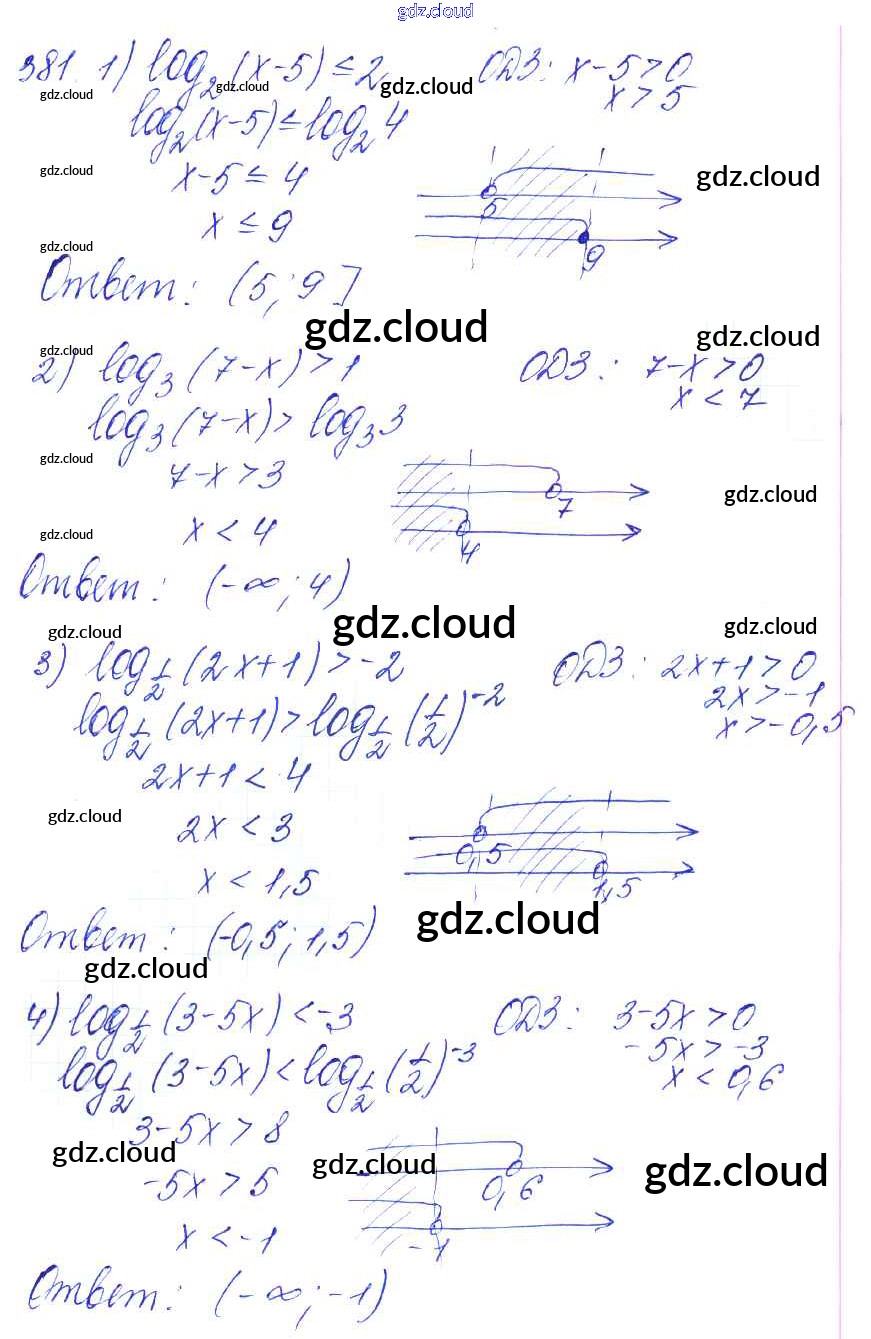 gdz.cloud
381. 1) log₂(x-5) ≤ 2 ОДЗ: x-5>0
gdz.cloud gdz.cloud gdz.cloud
x > 5
log₂(x-5) ≤ log₂4
gdz.cloud x-5 ≤ 4 gdz.cloud
5
x ≤ 9
gdz.cloud
9
Ответ: (5; 9]
gdz.cloud gdz.cloud
gdz.cloud
2) log₃(7-x) > 1 ОДЗ: 7-x > 0
x < 7
log₃(7-x) > log₃3
gdz.cloud
7-x > 3
gdz.cloud
7
x < 4
gdz.cloud
4
Ответ: (-∞; 4)
gdz.cloud gdz.cloud gdz.cloud
3) log_{1/2}(2x+1) > -2 ОДЗ: 2x+1 > 0
2x > -1
log_{1/2}(2x+1) > log_{1/2}(1/2)^{-2}
x > -0,5
2x+1 < 4
gdz.cloud
2x < 3
0,5
x < 1,5
1,5
gdz.cloud
Ответ: (-0,5; 1,5)
gdz.cloud
4) log_{1/2}(3-5x) < -3 ОДЗ: 3-5x > 0
-5x > -3
log_{1/2}(3-5x) < log_{1/2}(1/2)^{-3}
x < 0,6
3-5x > 8
gdz.cloud gdz.cloud gdz.cloud
-5x > 5
0,6
x < -1
-1
Ответ: (-∞; -1)